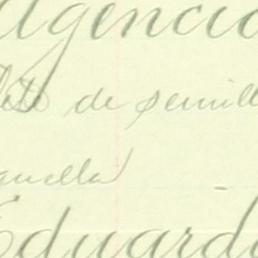 Agencia
de semill
aquella
Eduard